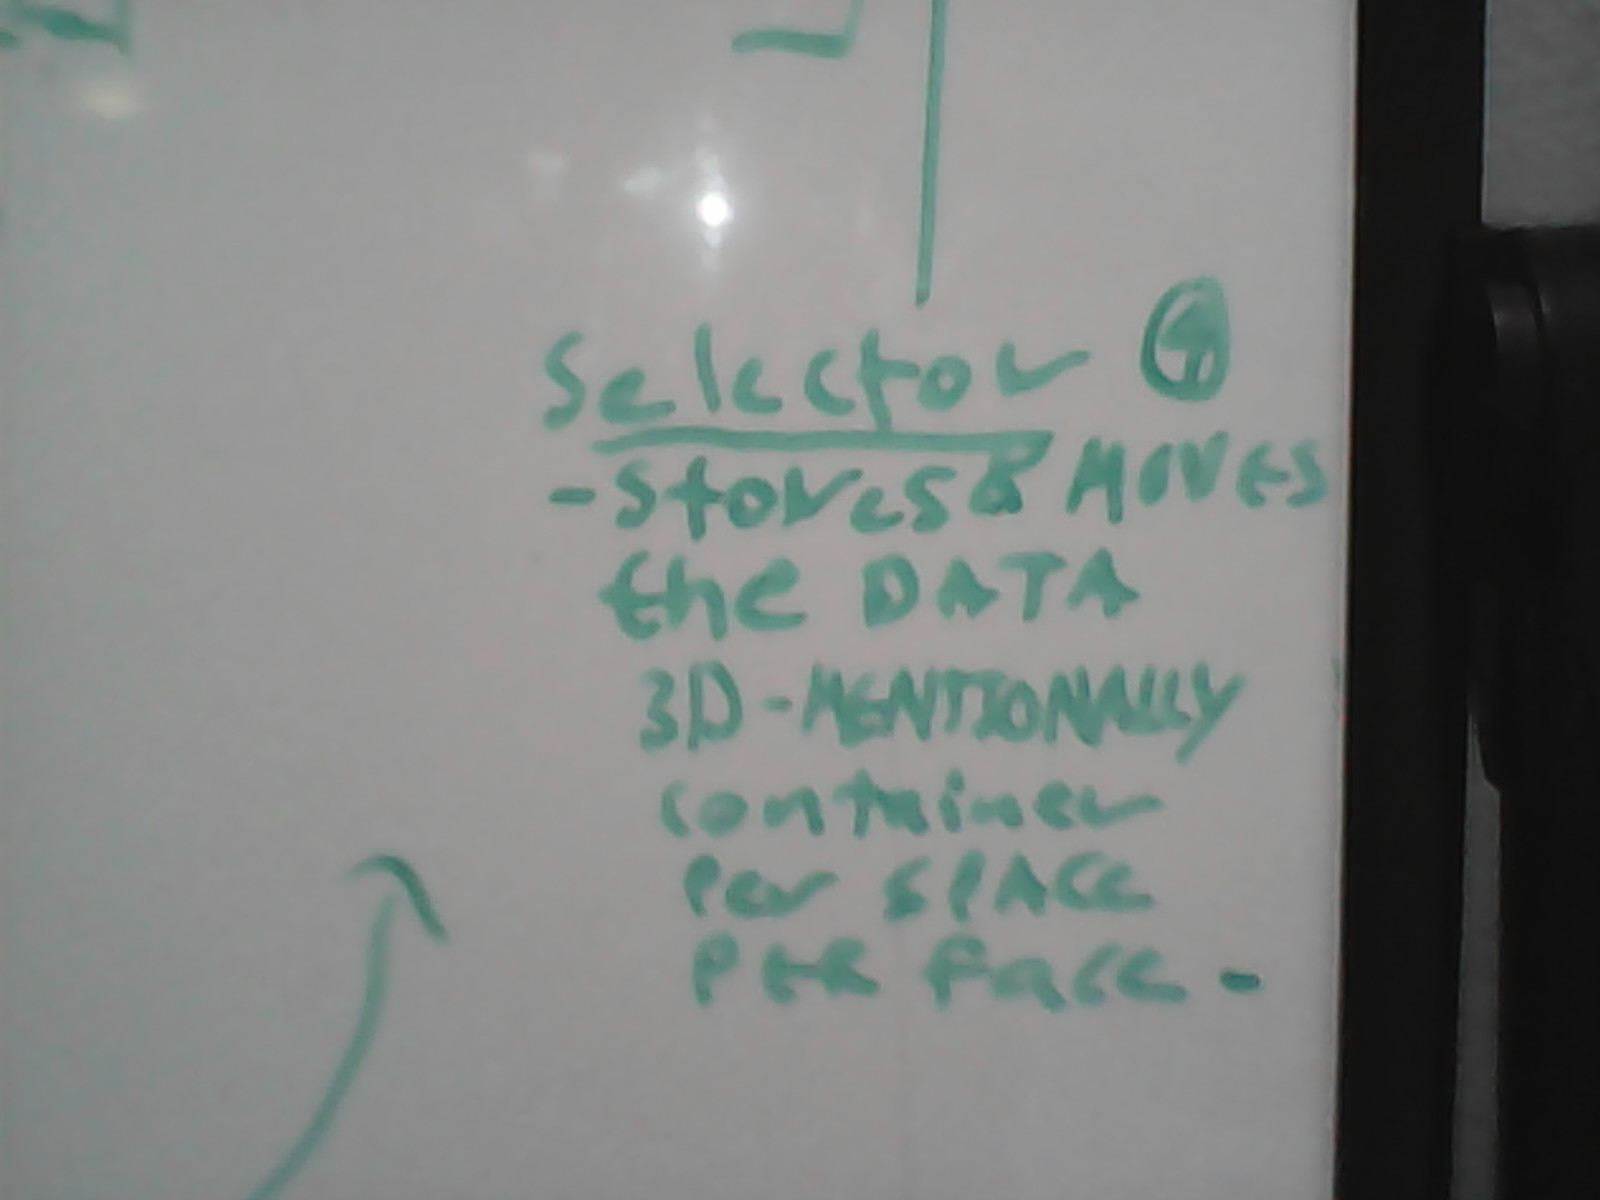 Selector
- stores & MOVES
the DATA
3D-MENTIONALLY
container
Per SPACE
PER Face -